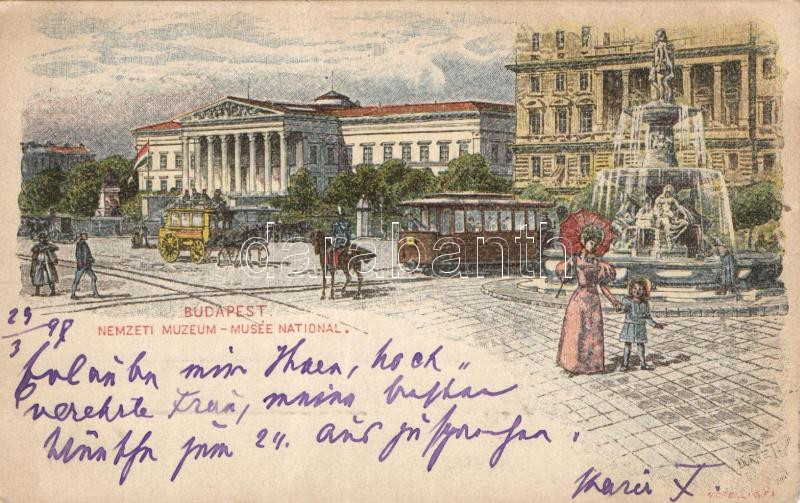 BUDAPEST.
NEMZETI MUZEUM – MUSÉE NATIONAL.
29/3 97
Erlaube mir Ihnen, hoch„
verehrte Frau, meine besten
Wünsche zum 24. auszusprechen.
darabanth